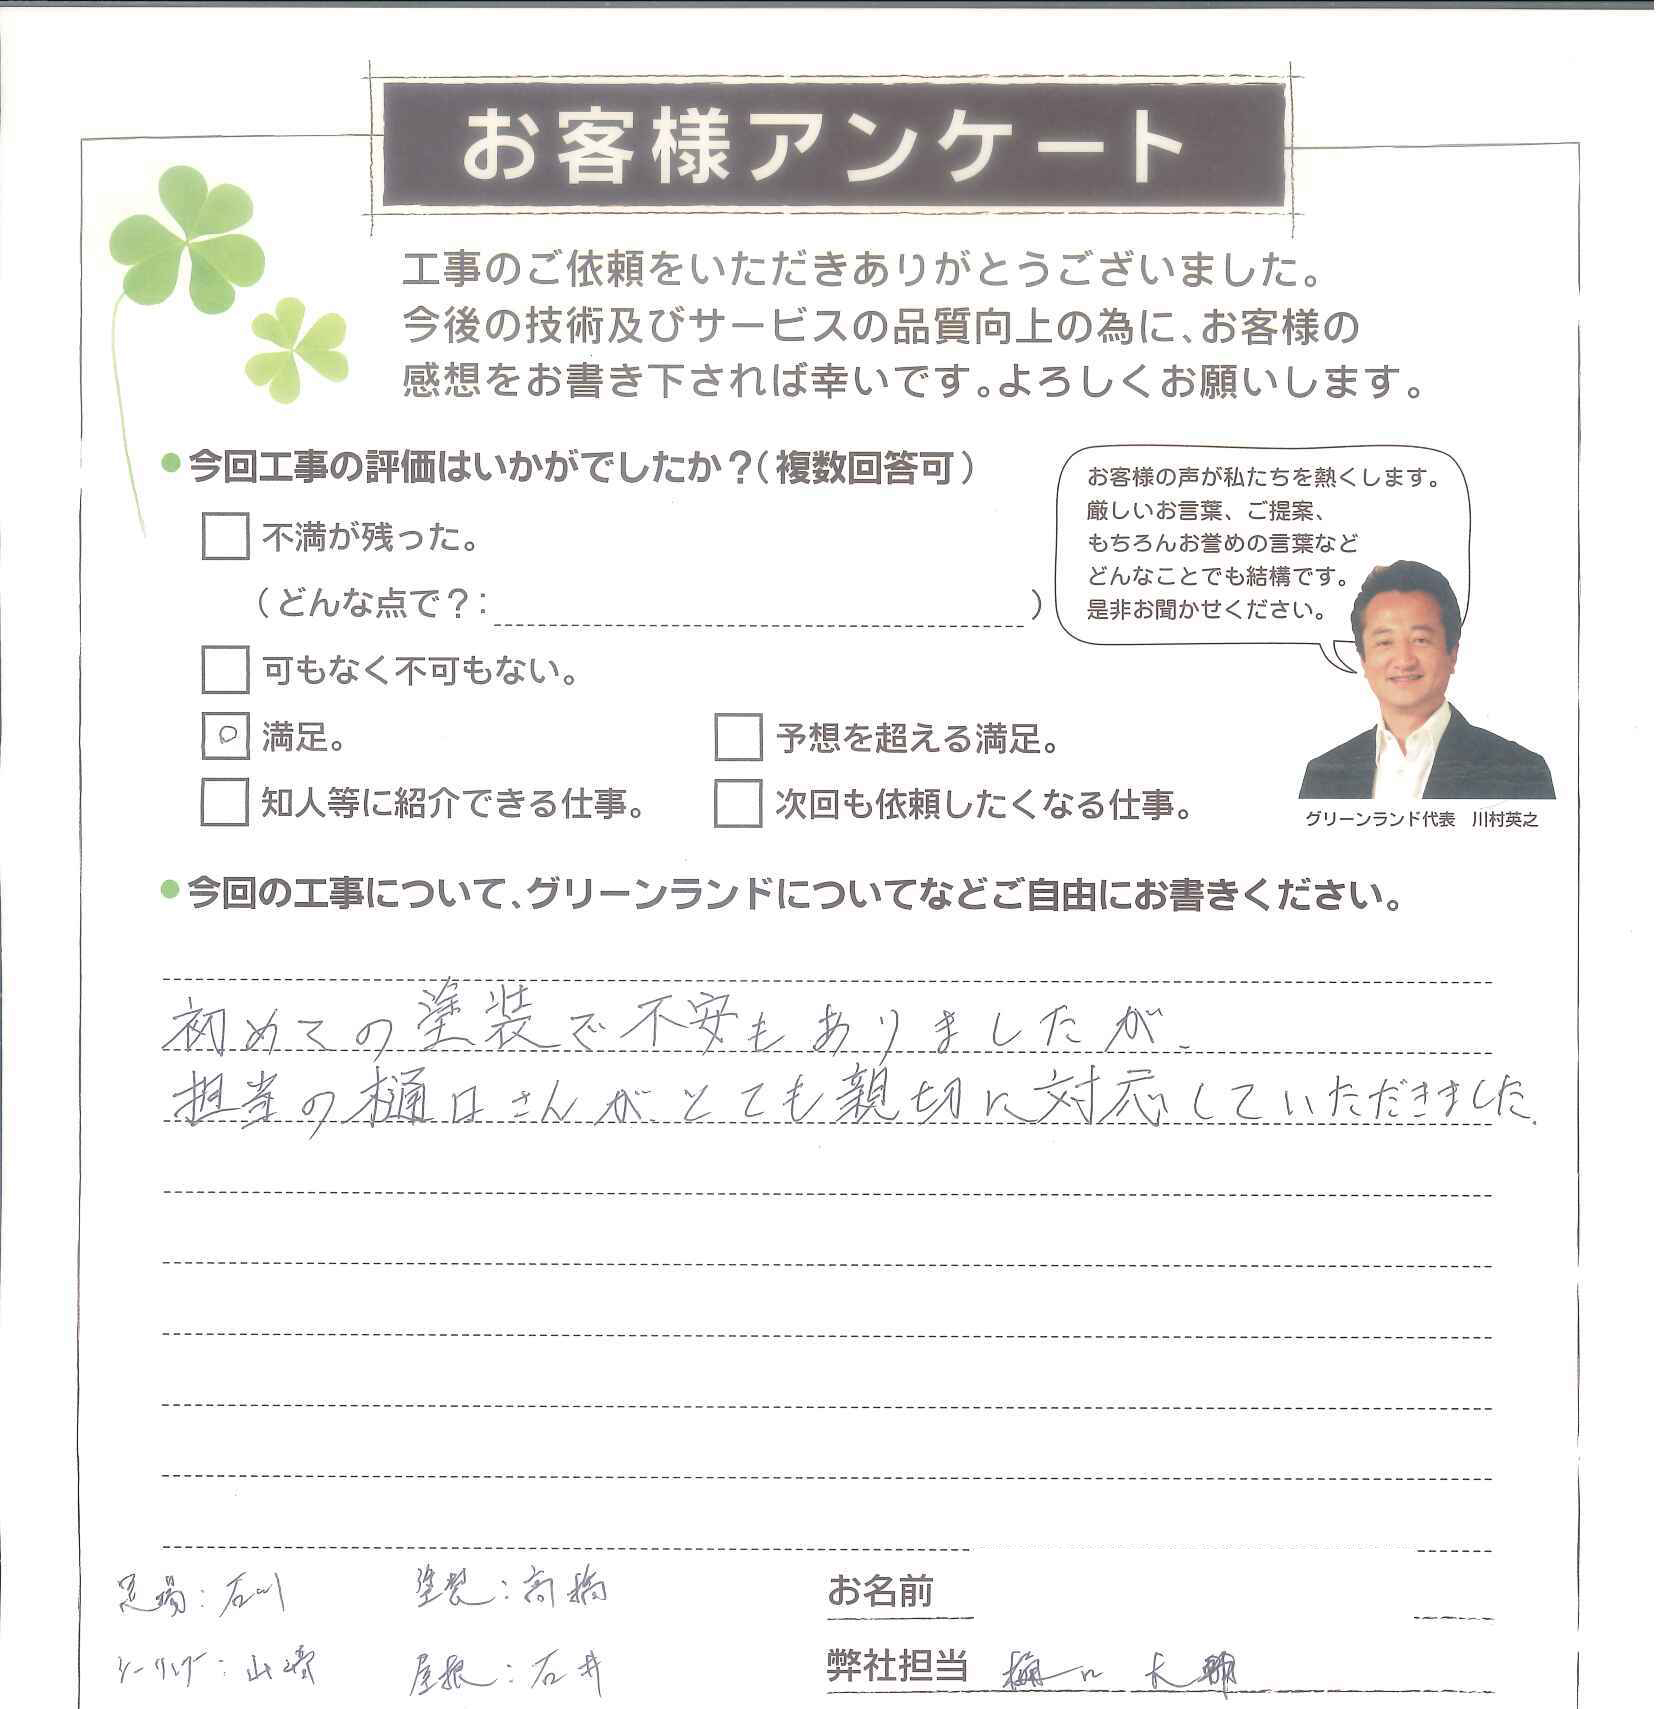 お客様アンケート
工事のご依頼をいただきありがとうございました。
今後の技術及びサービスの品質向上の為に、お客様の
感想をお書き下されば幸いです。よろしくお願いします。
●今回工事の評価はいかがでしたか？(複数回答可)
不満が残った。
(どんな点で？:                )
可もなく不可もない。
○ 満足。
予想を超える満足。
知人等に紹介できる仕事。
次回も依頼したくなる仕事。
お客様の声が私たちを熱くします。
厳しいお言葉、ご提案、
もちろんお誉めの言葉など
どんなことでも結構です。
是非お聞かせください。
グリーンランド代表　川村英之
●今回の工事について、グリーンランドについてなどご自由にお書きください。
初めての塗装で不安もありましたが、
担当の樋口さんが、とても親切に対応していただきました。
足場：石川
塗装：高橋
シーリング：山﨑
屋根：石井
お名前
弊社担当 樋口 大輔